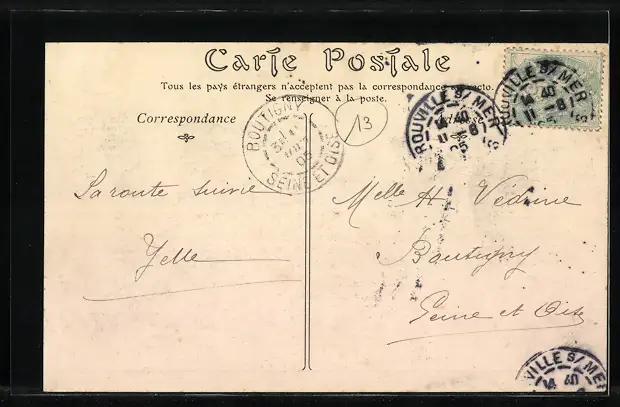 Carte Postale
Tous les pays étrangers n'acceptent pas la correspondance au recto.
Se renseigner à la poste.
Correspondance
Adresse
BOUTIGNY
05
SEINE ET OISE
13
ROUVILLE S/ MER
14 40
11 -8
05
ROUVILLE S/ MER
14 40
11 -8
05
La route suivie
Yelle
Melle H Védrine
Boutigny
Seine et Oise
VILLE S/ MER
14 40